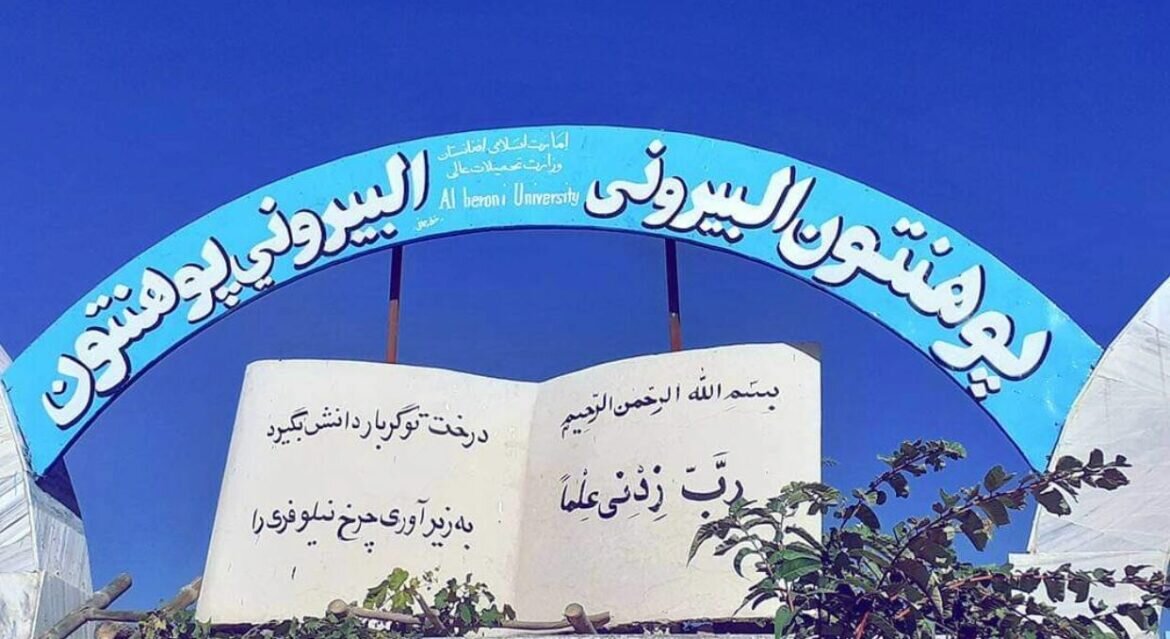 پوهنتون البیرونی
امارت اسلامی افغانستان
وزارت تحصیلات عالی
Al beroni University
البیروني پوهنتون
بسم الله الرحمن الرحیم
رَبِّ زِدْنی عِلْماً
درخت تو گر بار دانش بگیرد
به زیر آوری چرخ نیلوفری را